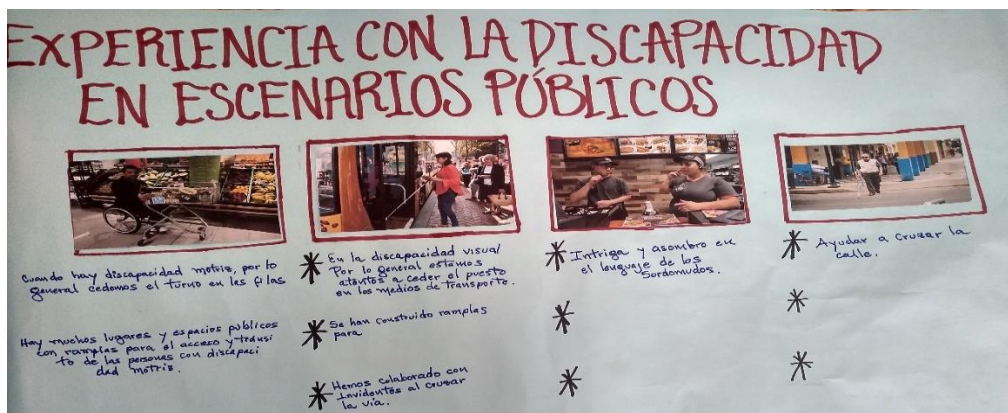 EXPERIENCIA CON LA DISCAPACIDAD
EN ESCENARIOS PÚBLICOS
Cuando hay discapacidad motriz, por lo
general cedemos el turno en las filas
Hay muchos lugares y espacios públicos
con ramplas para el acceso y transi
to de las personas con discapaci
dad motriz.
* En la discapacidad visual
Por lo general estamos
atentos a ceder el puesto
en los medios de transporte.
* Se han construido ramplas
para
* Hemos colaborado con
Invidentes al cruzar
la vía.
* Intriga y asombro en
el lenguaje de los
Sordomudos.
*
*
* Ayudar a cruzar la
calle.
*
*